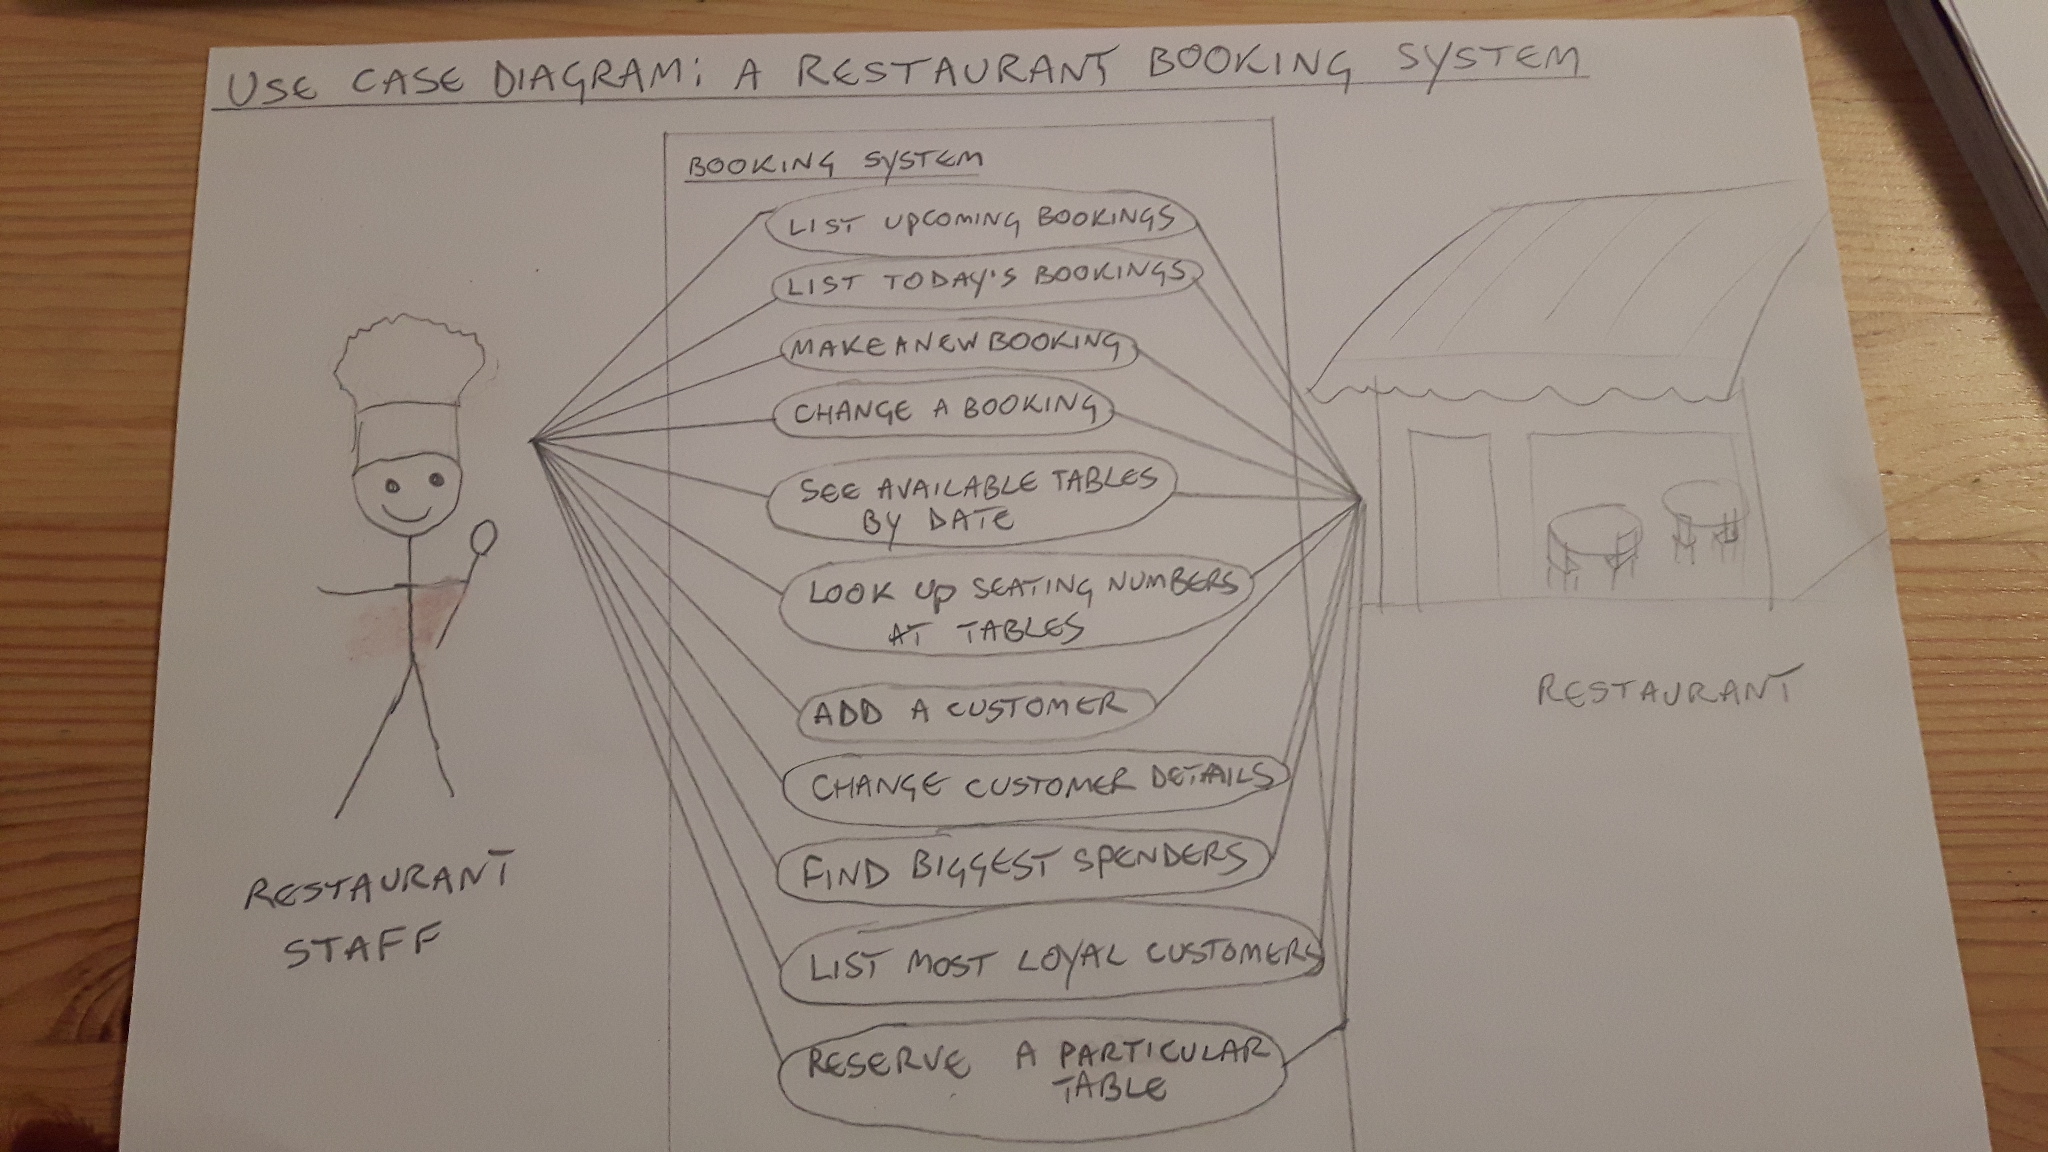 USE CASE DIAGRAM: A RESTAURANT BOOKING SYSTEM
BOOKING SYSTEM
LIST UPCOMING BOOKINGS
LIST TODAY'S BOOKINGS
MAKE A NEW BOOKING
CHANGE A BOOKING
SEE AVAILABLE TABLES
BY DATE
LOOK UP SEATING NUMBERS
AT TABLES
ADD A CUSTOMER
CHANGE CUSTOMER DETAILS
FIND BIGGEST SPENDERS
LIST MOST LOYAL CUSTOMERS
RESERVE A PARTICULAR
TABLE
RESTAURANT
STAFF
RESTAURANT